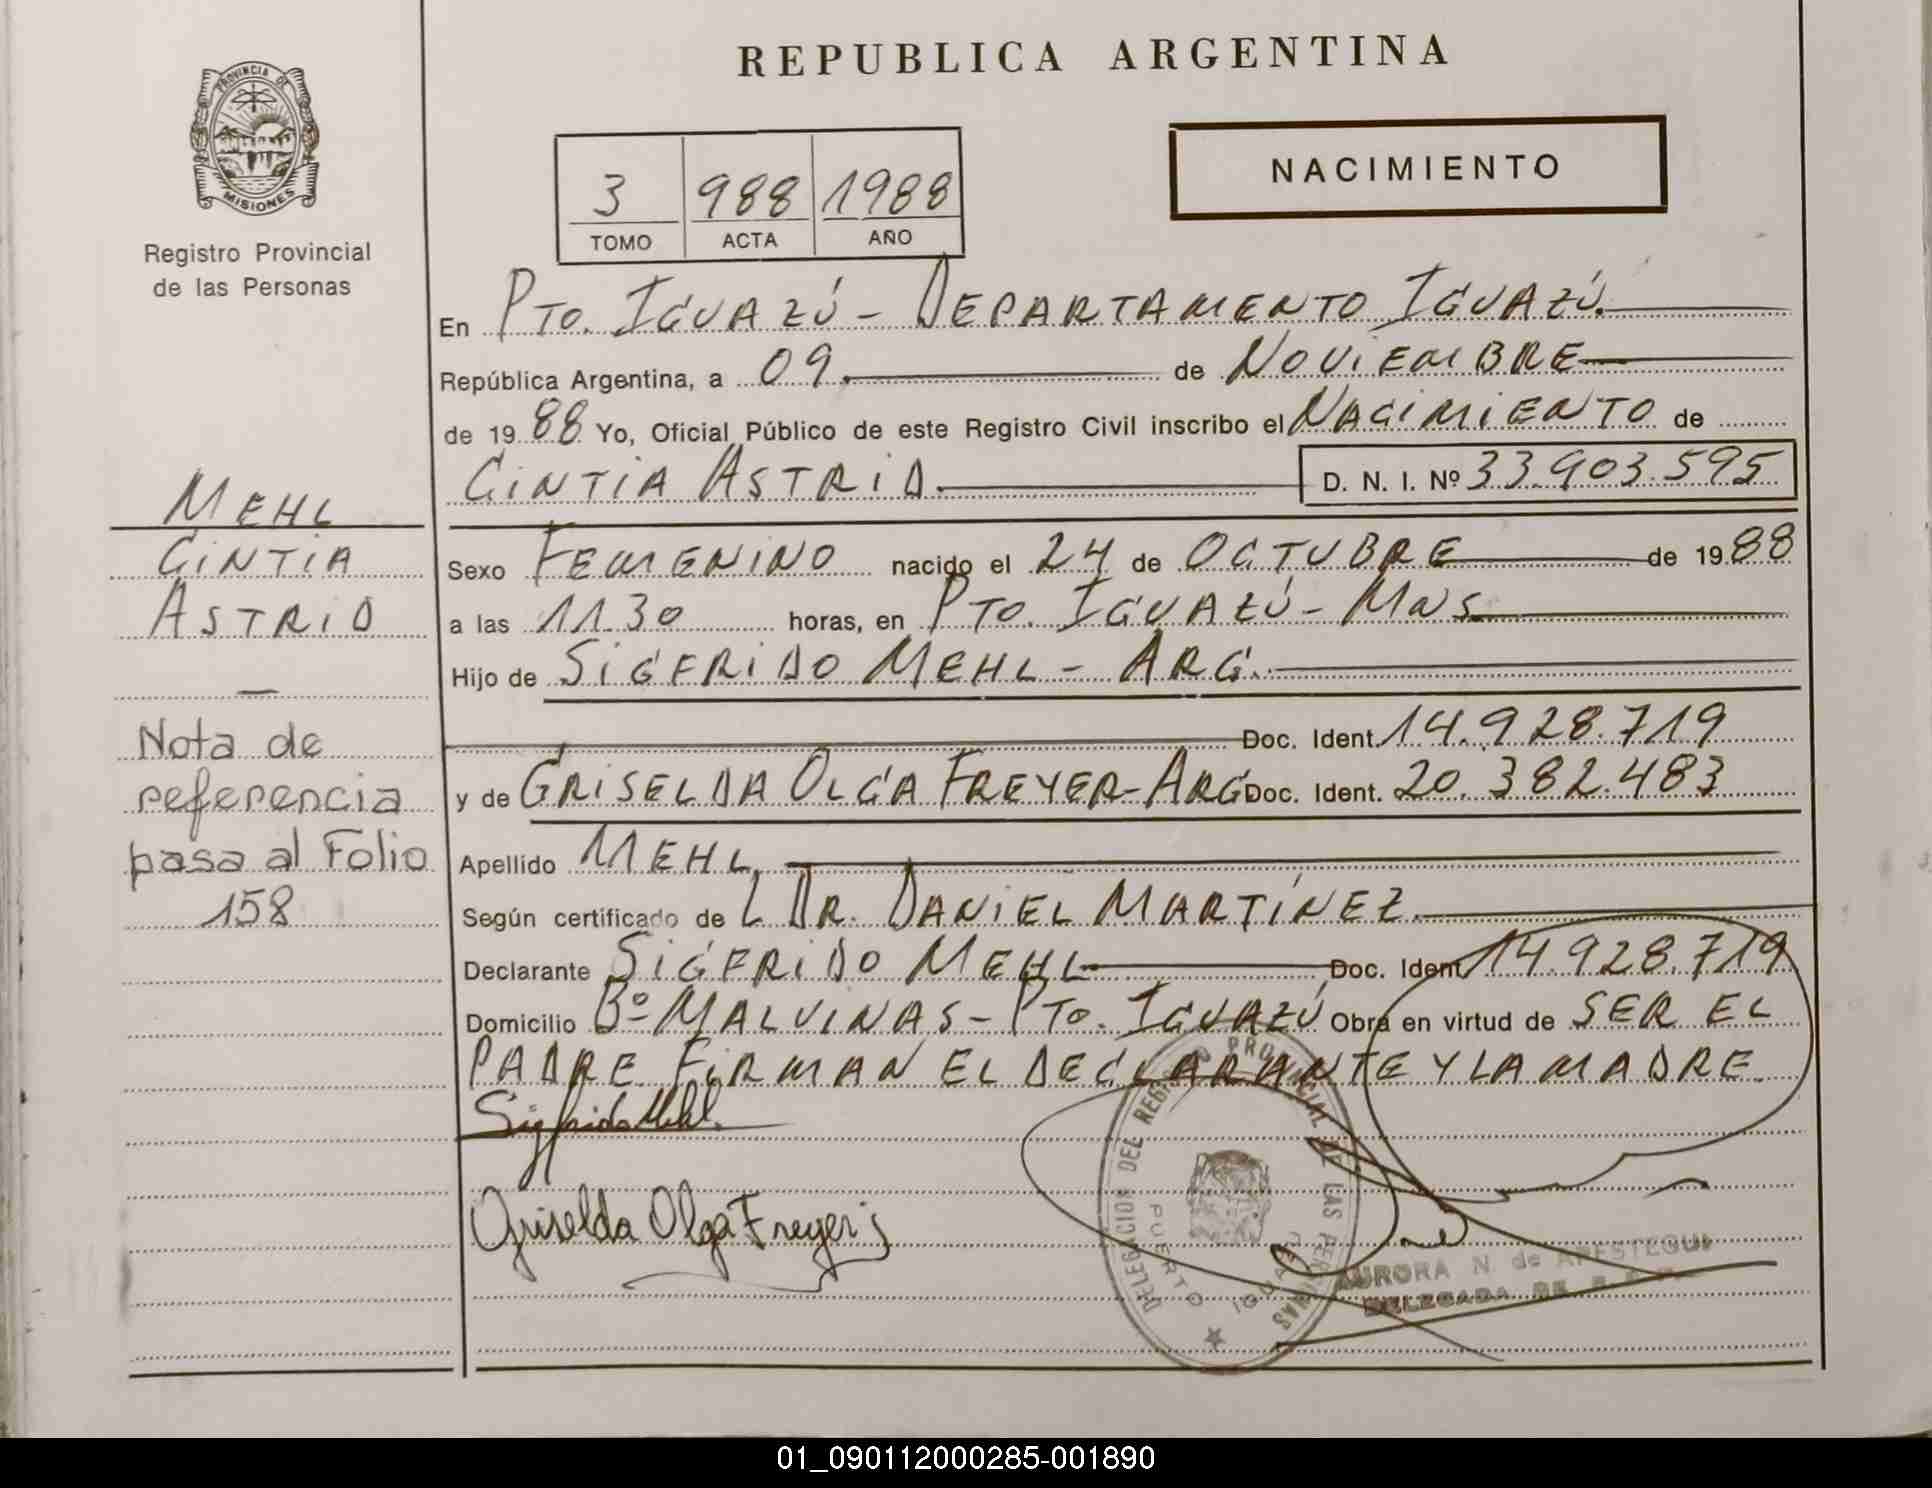 REPUBLICA ARGENTINA
PROVINCIA DE
MISIONES
Registro Provincial
de las Personas
3 988 1988
TOMO ACTA AÑO
NACIMIENTO
En PTO. IGUAZÚ - DEPARTAMENTO IGUAZÚ.
República Argentina, a 09. de NOVIEMBRE
de 1988 Yo, Oficial Público de este Registro Civil inscribo el NACIMIENTO de
CINTIA ASTRID. D. N. I. Nº 33.903.595
Sexo FEMENINO nacido el 24 de OCTUBRE de 1988
a las 11.30 horas, en PTO. IGUAZÚ - MNS.
Hijo de SIGFRIDO MEHL - ARG.
Doc. Ident. 14.928.719
y de GRISELDA OLGA FREYER-ARG Doc. Ident. 20.382.483
Apellido MEHL.
Según certificado de L DR. DANIEL MARTÍNEZ.
Declarante SIGFRIDO MEHL Doc. Ident. 14.928.719
Domicilio Bº MALVINAS - PTO. IGUAZÚ Obra en virtud de SER EL
PADRE FIRMAN EL DECLARANTE Y LA MADRE.
Sigfrido Mehl.
Griselda Olga Freyer
MEHL
CINTIA
ASTRID
Nota de
referencia
pasa al Folio
158
DELEGACION DEL REGISTRO PROVINCIAL DE LAS PERSONAS
PUERTO IGUAZU
AURORA N. de APESTEGUI
DELEGADA DE
01_090112000285-001890